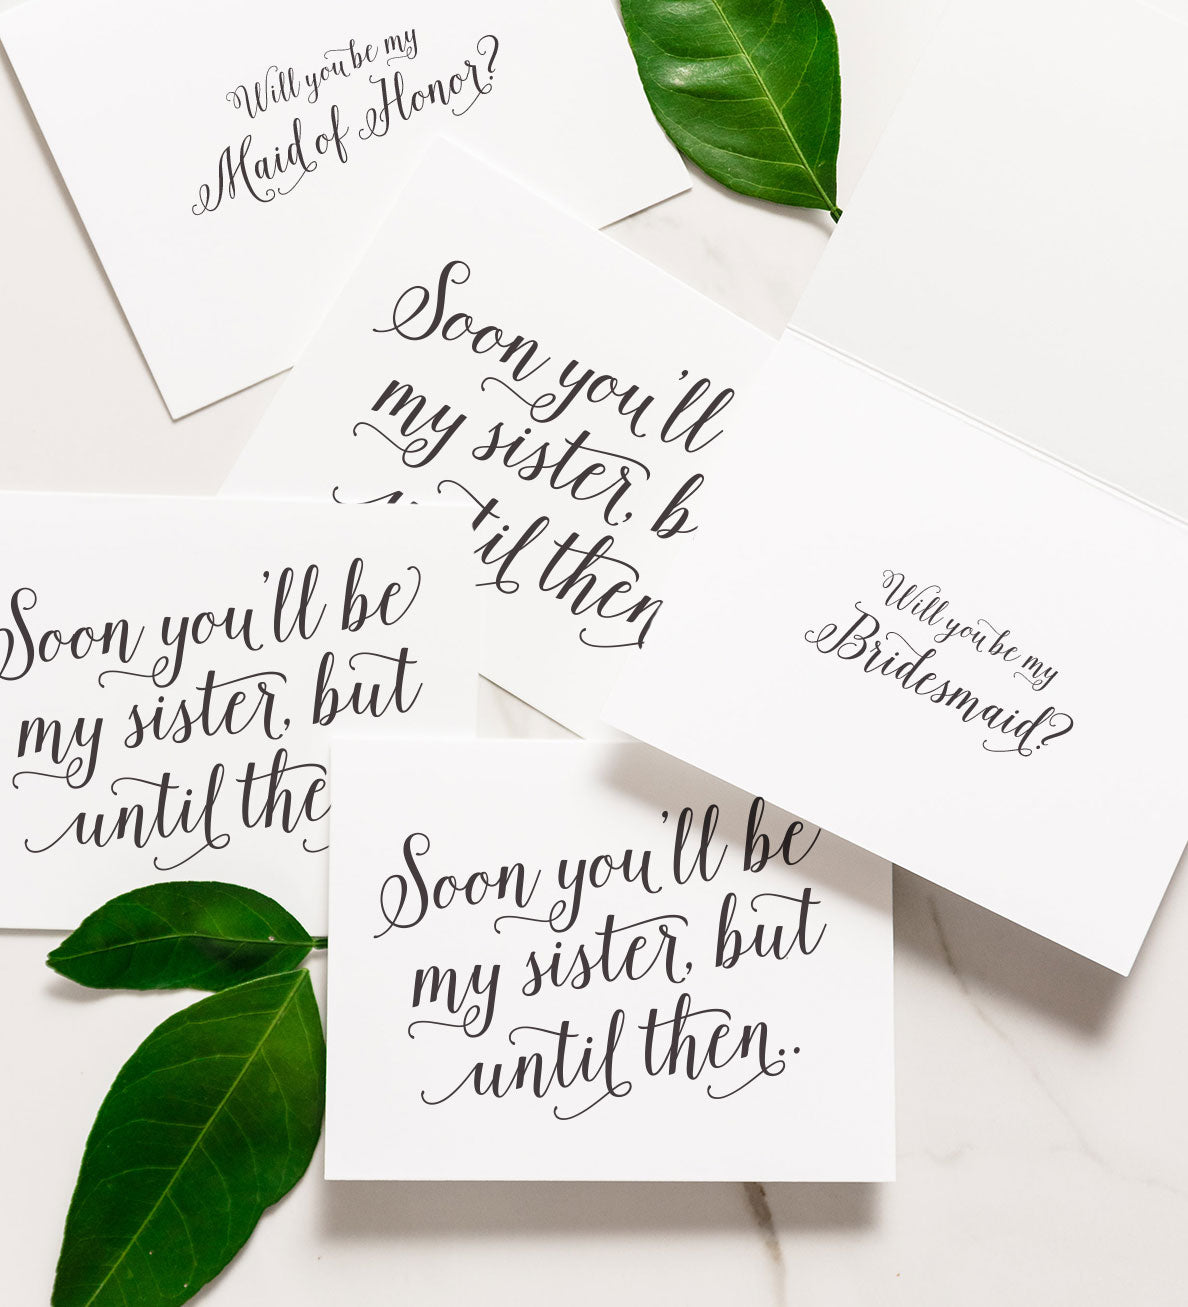 Will you be my
Maid of Honor?
Soon you'll
my sister, b
til then
Will you be my
Bridesmaid?
Soon you'll be
my sister, but
until the
Soon you'll be
my sister, but
until then..